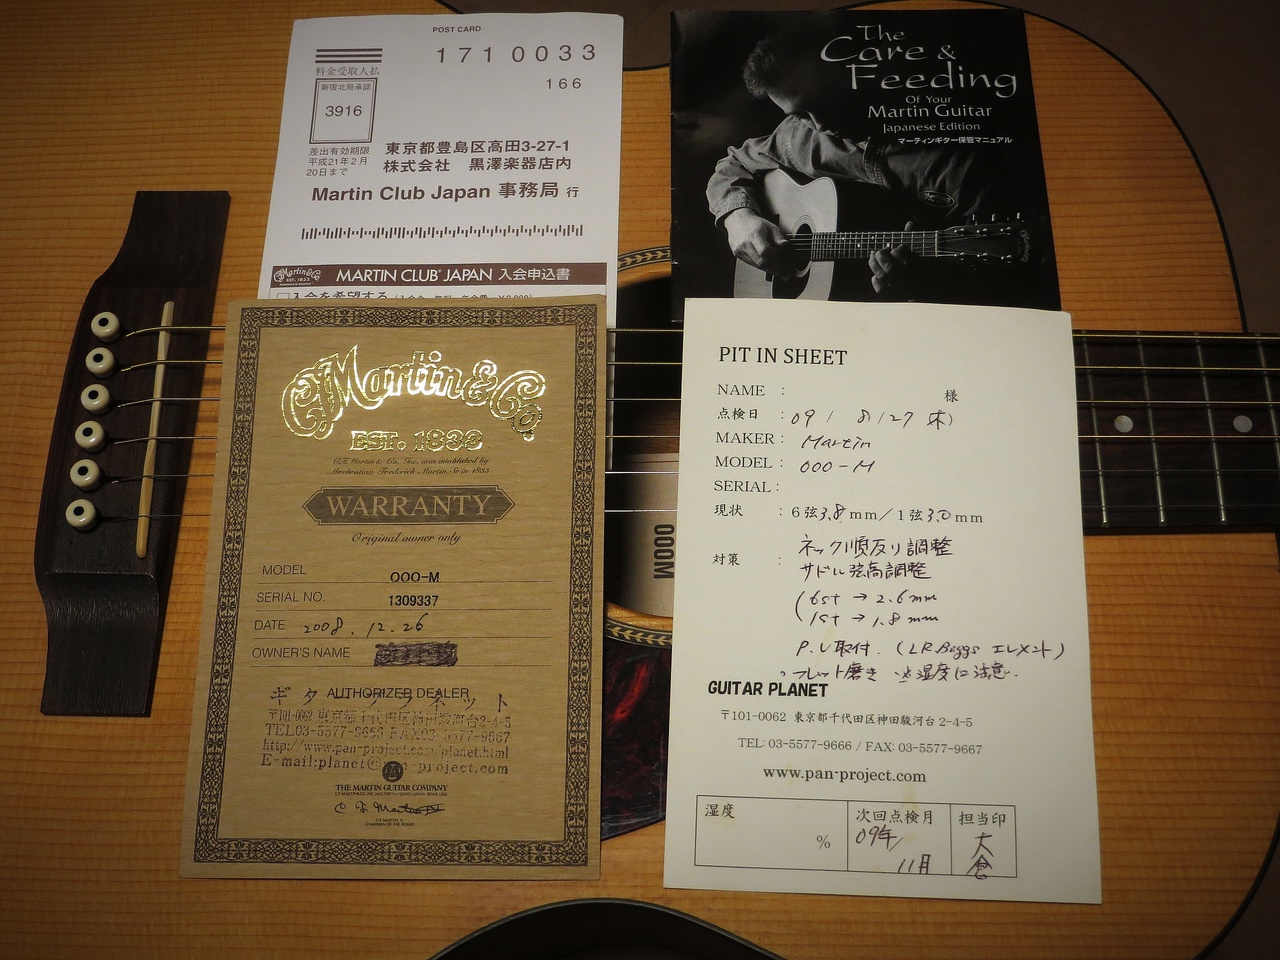 POST CARD
1710033
166
料金受取人払
新宿北局承認
3916
差出有効期限
平成21年2月
20日まで
東京都豊島区高田3-27-1
株式会社 黒澤楽器店内
Martin Club Japan 事務局 行
Martin & Co
EST. 1833
MARTIN CLUB JAPAN 入会申込書
入会を希望する
The
Care &
Feeding
Of Your
Martin Guitar
Japanese Edition
マーティンギター保管マニュアル
C.F. Martin & Co.
EST. 1833
C.F. Martin & Co. Inc. was established by
Christian Frederick Martin, Sr. in 1833
WARRANTY
Original owner only
MODEL 000-M
SERIAL NO. 1309337
DATE 2008.12.26
OWNER'S NAME
AUTHORIZED DEALER
ギタープラネット
〒101-0062 東京都千代田区神田駿河台2-4-5
TEL03-5577-9666 FAX03-5577-9667
http://www.pan-project.com/planet.html
E-mail:planet@pan-project.com
THE MARTIN GUITAR COMPANY
C. F. Martin IV
C.F. MARTIN IV
CHAIRMAN OF THE BOARD
000M
PIT IN SHEET
NAME : 様
点検日 : 09 / 8 / 27 木)
MAKER : Martin
MODEL : 000-M
SERIAL :
現状 : 6弦3.8mm/1弦3.0mm
対策 : ネック順反り調整
サドル弦高調整
(6st → 2.6mm
1st → 1.8mm
P.U取付. (LR Baggs エレメント)
フレット磨き ※湿度に注意.
GUITAR PLANET
〒101-0062 東京都千代田区神田駿河台 2-4-5
TEL: 03-5577-9666 / FAX: 03-5577-9667
www.pan-project.com
湿度 %
次回点検月
09年/
11月
担当印
大倉